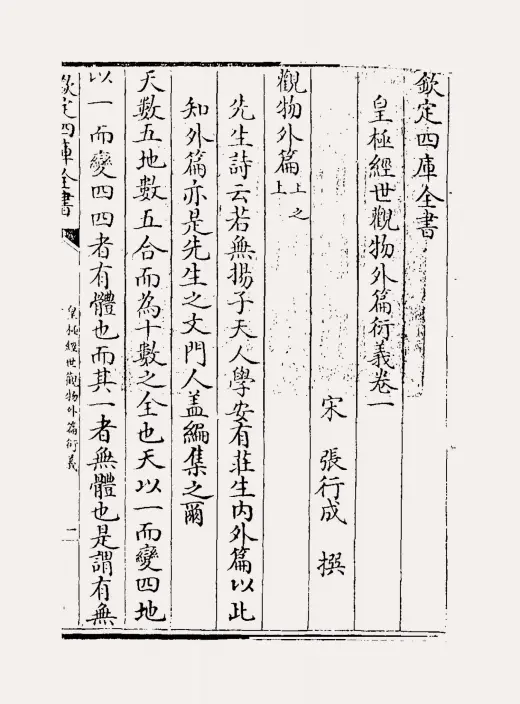 欽定四庫全書
皇極經世觀物外篇衍義卷一
宋 張行成 撰
觀物外篇上之上
先生詩云若無揚子天人學安有莊生内外篇以此
知外篇亦是先生之文門人盖編集之爾
天數五地數五合而為十數之全也天以一而變四地
以一而變四四者有體也而其一者無體也是謂有無
欽定四庫全書
皇極經世觀物外篇衍義
一